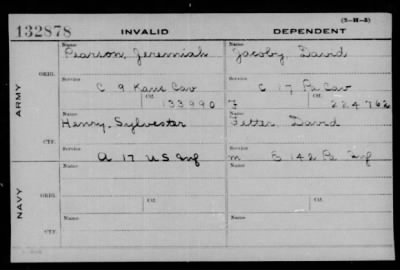 (3-H-3)
132878 INVALID DEPENDENT
Name Name
Pearson, Jeremiah Jacoby, David
ARMY ORIG. Service Service
C 9 Kans Cav C 17 Pa Cav
Ctf. Ctf.
133990 F 224762
Name Name
Henry, Sylvester Fetter David
CTF. Service Service
A 17 US Inf M E 142 Pa Inf
Name Name
NAVY ORIG. Ctf. Ctf.
Name Name
CTF. Service Service